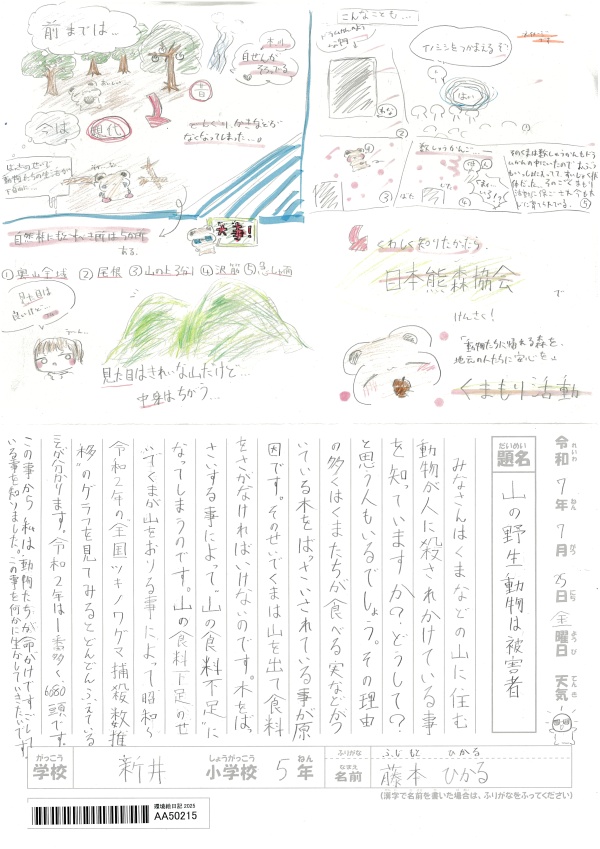 前までは…
木の
自せんが
そろってる
おいしい
昔
今は
現代
なくなってしまった…。
動物たちの生活が
こんなことも…
イノシシをつかまえるぞ
はい
①
②
③
④
⑤
自然林におすべき所は5か所
ある。
大事!
①奥山全域 ②尾根 ③山の上3分の1 ④沢筋 ⑤急しゃ面
見た目は
良いけど…
うーん…
見た目はきれいな山だけど…
中身はちがう…
くわしく知りたかったら
日本熊森協会
で
けんさく!
「動物たちに帰れる森を、
地元の人たちに安心を」
くまもり活動
令和7年7月25日金曜日 天気
れいわ ねん がつ にち ようび てんき
だいめい
題名
山の野生動物は被害者
みなさんはくまなどの山に住む
動物が人に殺されかけている事
を知っていますか?どうして?
と思う人もいるでしょう。その理由
の多くはくまたちが食べる実などがつ
いている木をばっさいされている事が原
因です。そのせいでくまは山を出て食料
をさがなければいけないのです。木をばっ
さいする事によって"山の食料不足"に
なってしまうのです。山の食料下足のせ
いでくまが山をおりる事によって昭和~
令和2年の"全国ツキノワグマ捕殺数推
移"のグラフを見てみるとどんどんふえている
ことが分かります。令和2年は1番多く、6080頭です。
この事から私は動物たちが命がけですごして
いる事を知りました。この事を何かに生かしていきたいです。
がっこう
学校
新井
しょうがっこう
小学校
5年
ねん
ふりがな
ふじもと ひかる
なまえ
名前
藤本 ひかる
(漢字で名前を書いた場合は、ふりがなをふってください)
環境絵日記2025
AA50215